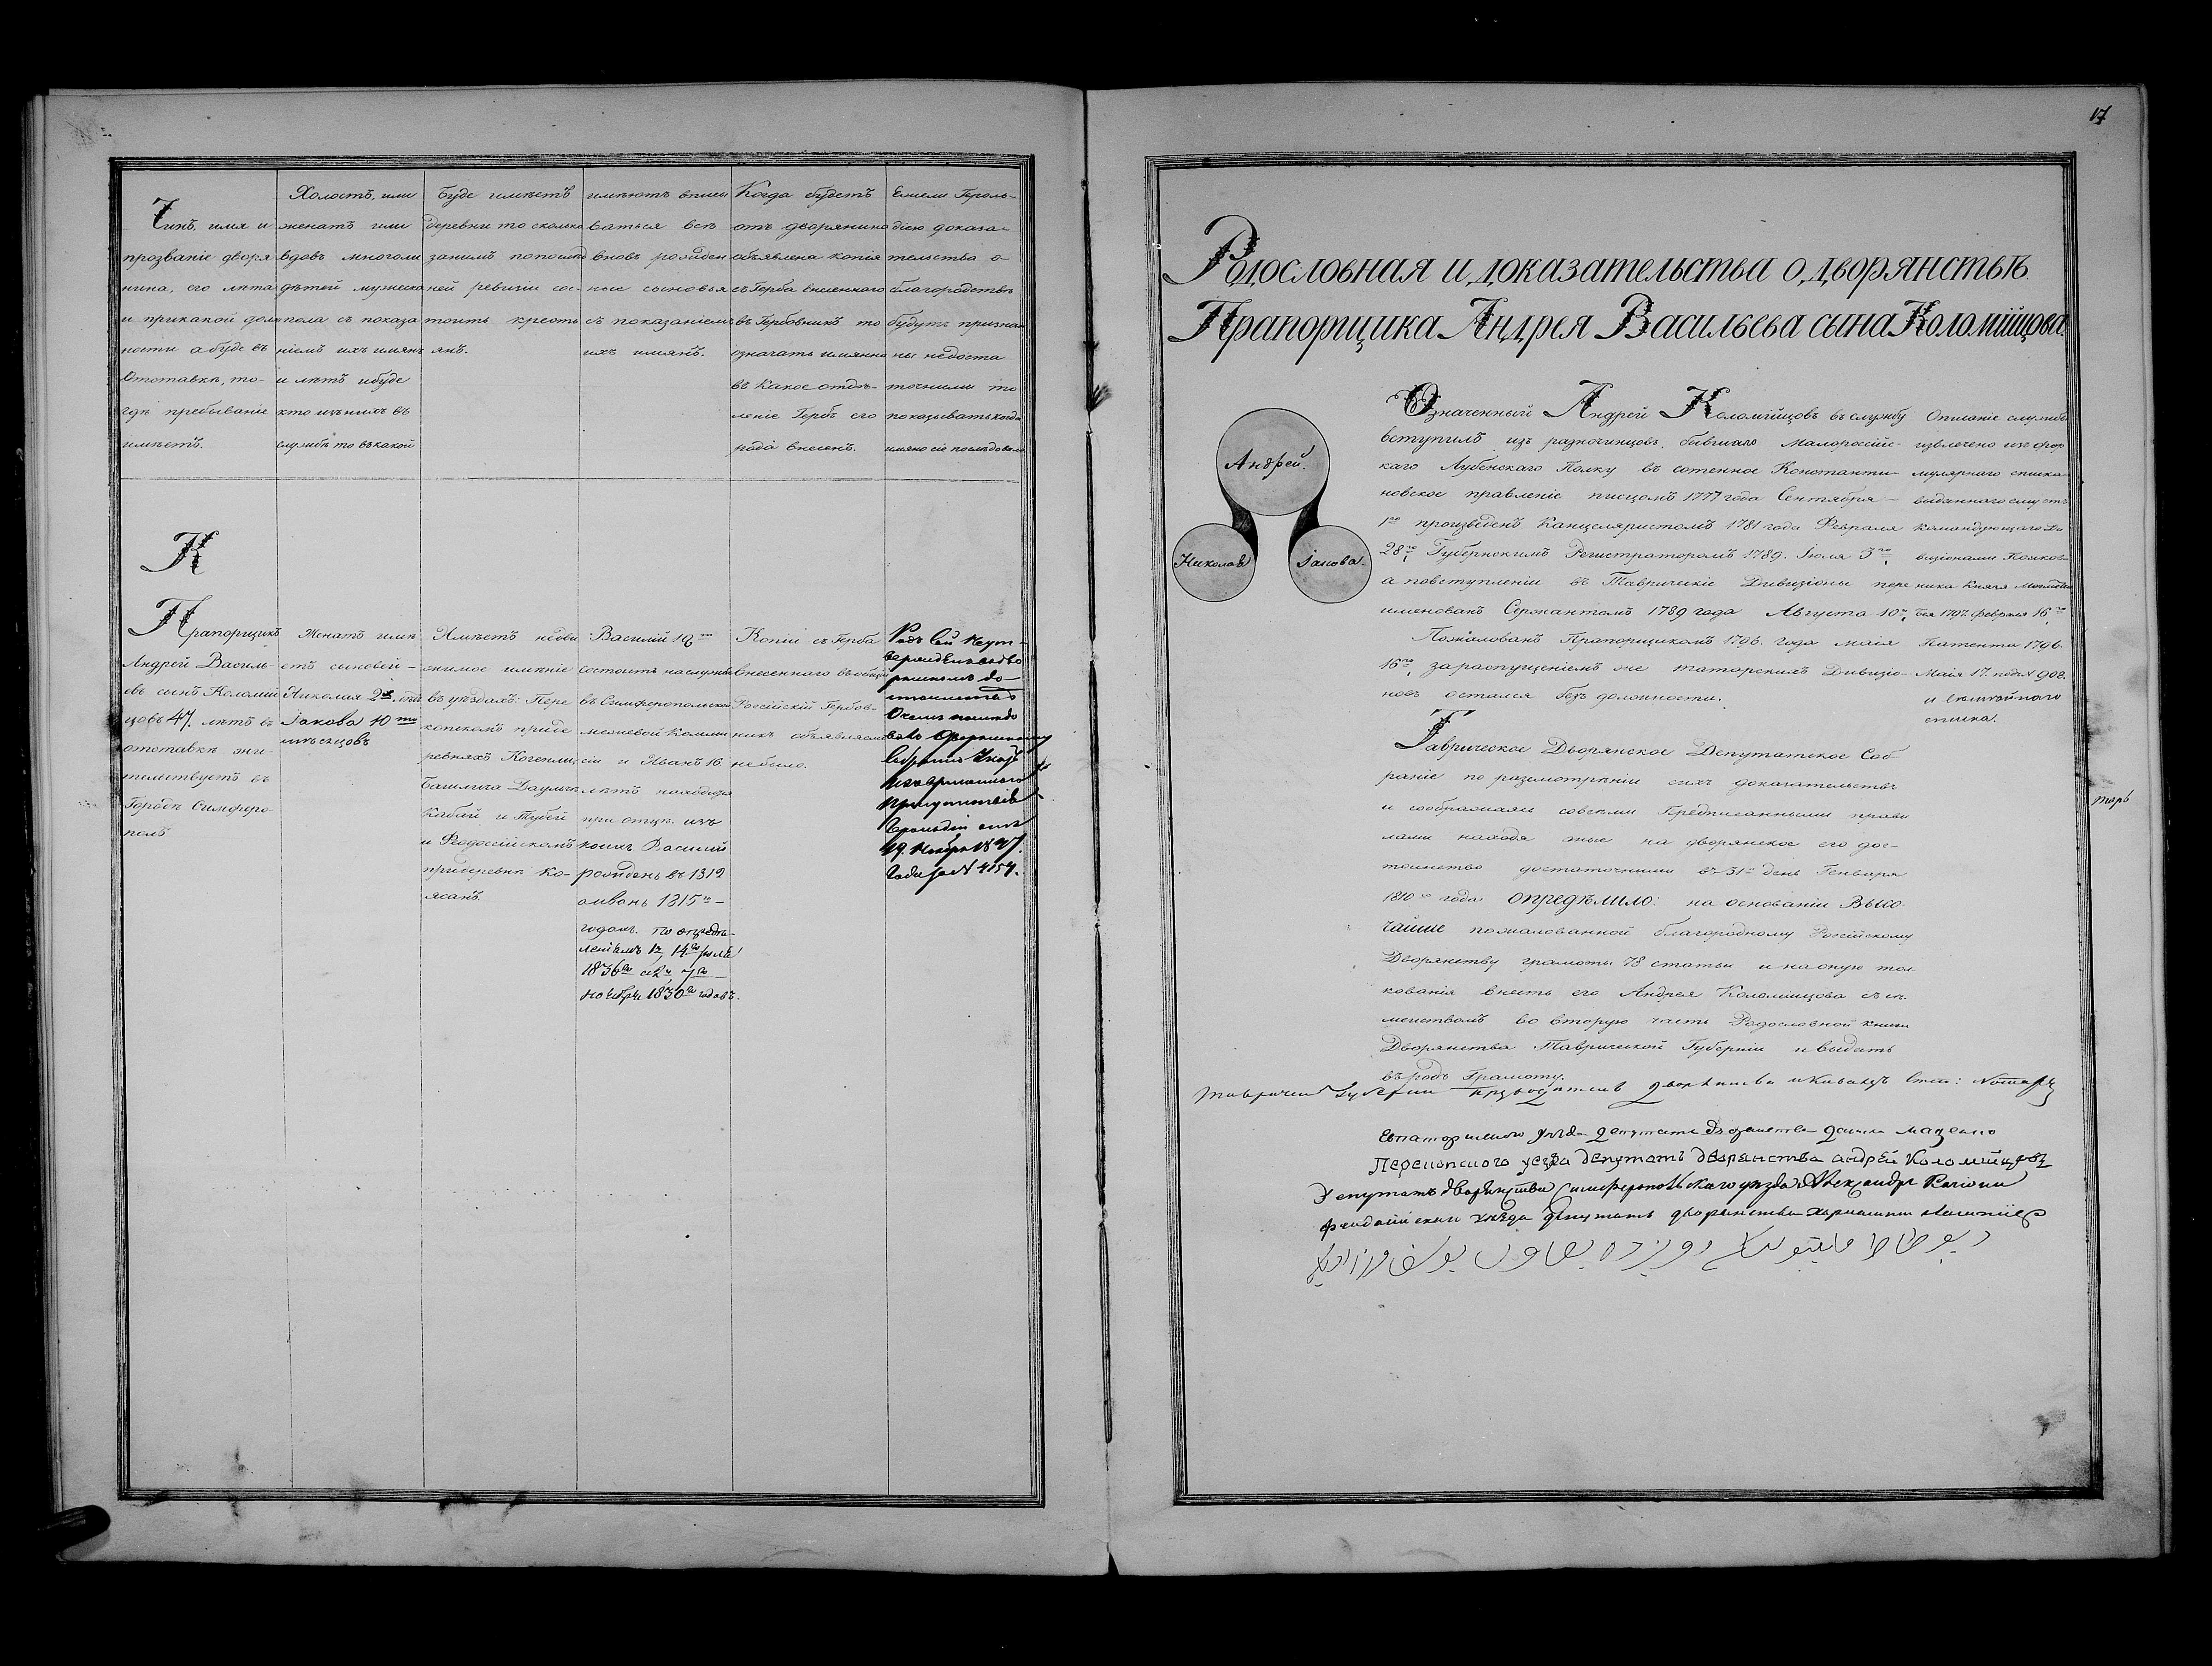 Чинъ, имя и
прозваніе дворя
нина, его лѣта
и прикакой долж
ности а буде въ
Отставкѣ, то-
гдѣ пребываніе
имѣетъ.
Холостъ, или
женатъ или
вдовъ многоли
дѣтей мужеска
пола съ показа
ніемъ ихъ имянъ
и лѣтъ ибуде
кто изънихъ въ
службѣ то въкакой
Буде имѣетъ
деревни то сколько
занимъ попослѣд
ней ревизіи сос-
тоитъ кресть
янъ.
имѣютъ вписы
ваться всѣ
вновь рожден
ные сыновья
съ показаніемъ
ихъ имянъ.
Когда будетъ
отъ дворянина
объявлена копія
съ Герба внесеннаго
въ Гербовникъ то
означать имянно
въ Какое отдѣ-
леніе Гербъ его
рода внесенъ.
Ежели Героль-
діею доказа-
тельства о
благородствѣ
будутъ признан
ны недоста
точными то
показыватькогда
имяно сіе послѣдовало
К
Прапорщикъ
Андрей Василь-
евъ сынъ Коломій
цовъ 47. лѣтъ въ
отставкѣ жи-
тельствуетъ въ
Городѣ Симферо-
полѣ
Женатъ имѣ
етъ сыновей -
Николая 2хъ лѣтъ
Іакова 10 ти
мѣсяцовъ
Имѣетъ недви
жимое имѣніе
въ уѣздахъ: Пере
копскомъ приде
ревняхъ
Кабай и
и Феодосійскомъ
придеревнѣ Ко-
ясанѣ.
Василій 19
состоитъ наслужбѣ
въ Симферопольской
межевой Комми
сіи и Иванъ 16
лѣтъ находяся
при отцѣ. изъ
коихъ Василій
рожденъ въ 1812
аивань 1815 м-
годахъ. По опредѣ-
леніямъ 1е, 14го
1836го а 2е 7го
ноября 1830го годовъ.
Копій съ Герба
внесеннаго въобщій
Россійскій Гербов-
никъ объявляемо
небыло.
Родъ Сей Неут-
вержденъ въдво
рянскомъ до-
стоинствѣ
О чемъ послѣдо
валъ Дворянскому
Собранію Указъ
Герольдіи отъ
19. Ноября 1847.
Года за N 4154.
17
Родословная и доказательства о дворянствѣ
Прапорщика Андрея Васильева сына Коломійцова.
Андрей.
Николай
Іакова.
Означенный Андрей Коломійцовъ въ службу
вступилъ изъ разночинцовъ, бывшаго Малороссійс-
каго Лубенскаго Полку въ сотенное Константи-
новское правленіе писцомъ 1777 года Сентября -
1го произведенъ Канцеляристомъ 1781 года Февраля
28го, Губернскимъ Регистраторомъ 1789. Іюля 3го,
а повступленіи въ Таврическіе Дивизіоны пере
именованъ Сержантомъ 1789 года Августа 10го,
Пожалованъ Прапорщикомъ 1796. года маія
16го, зараспущеніемъ же татарскихъ Дивизіо-
новъ остался безъ должности.
Описаніе службы
извлечено изъ фор
мулярнаго списка
выданнаго ему отъ
командующаго Ди
визіонами Полков-
ника Князя
1797. февраля 16го
Патента 1796.
Маія 17. подъ N 908.
и
списка.
Таврическое Дворянское Депутатское Соб
раніе по разсмотрѣніи сихъ доказательствъ
и соображаясь совсѣми Предписанными прави
лами находя оные на дворянское его дос-
тоинство достаточными въ 31й день Генваря
1810го года опредѣлило: на основаніи Высо-
чайше пожалованной благородному Россійскому
Дворянству грамоты 78 статьи и на оную тол
кованія внесть его Андрея Коломійцова съ се-
мействомъ во вторую часть Родословной книги
Дворянства Таврической Губерніи и выдать
въродъ Грамоту.
Таврической Губерніи дворянства
уѣзда депутатъ дворянства
Перекопского уезда депутатъ дворянства андрей Коломійцовъ
Депутатъ дворянства Симферопольскаго уѣзда Александръ
уѣзда депутатъ дворянства